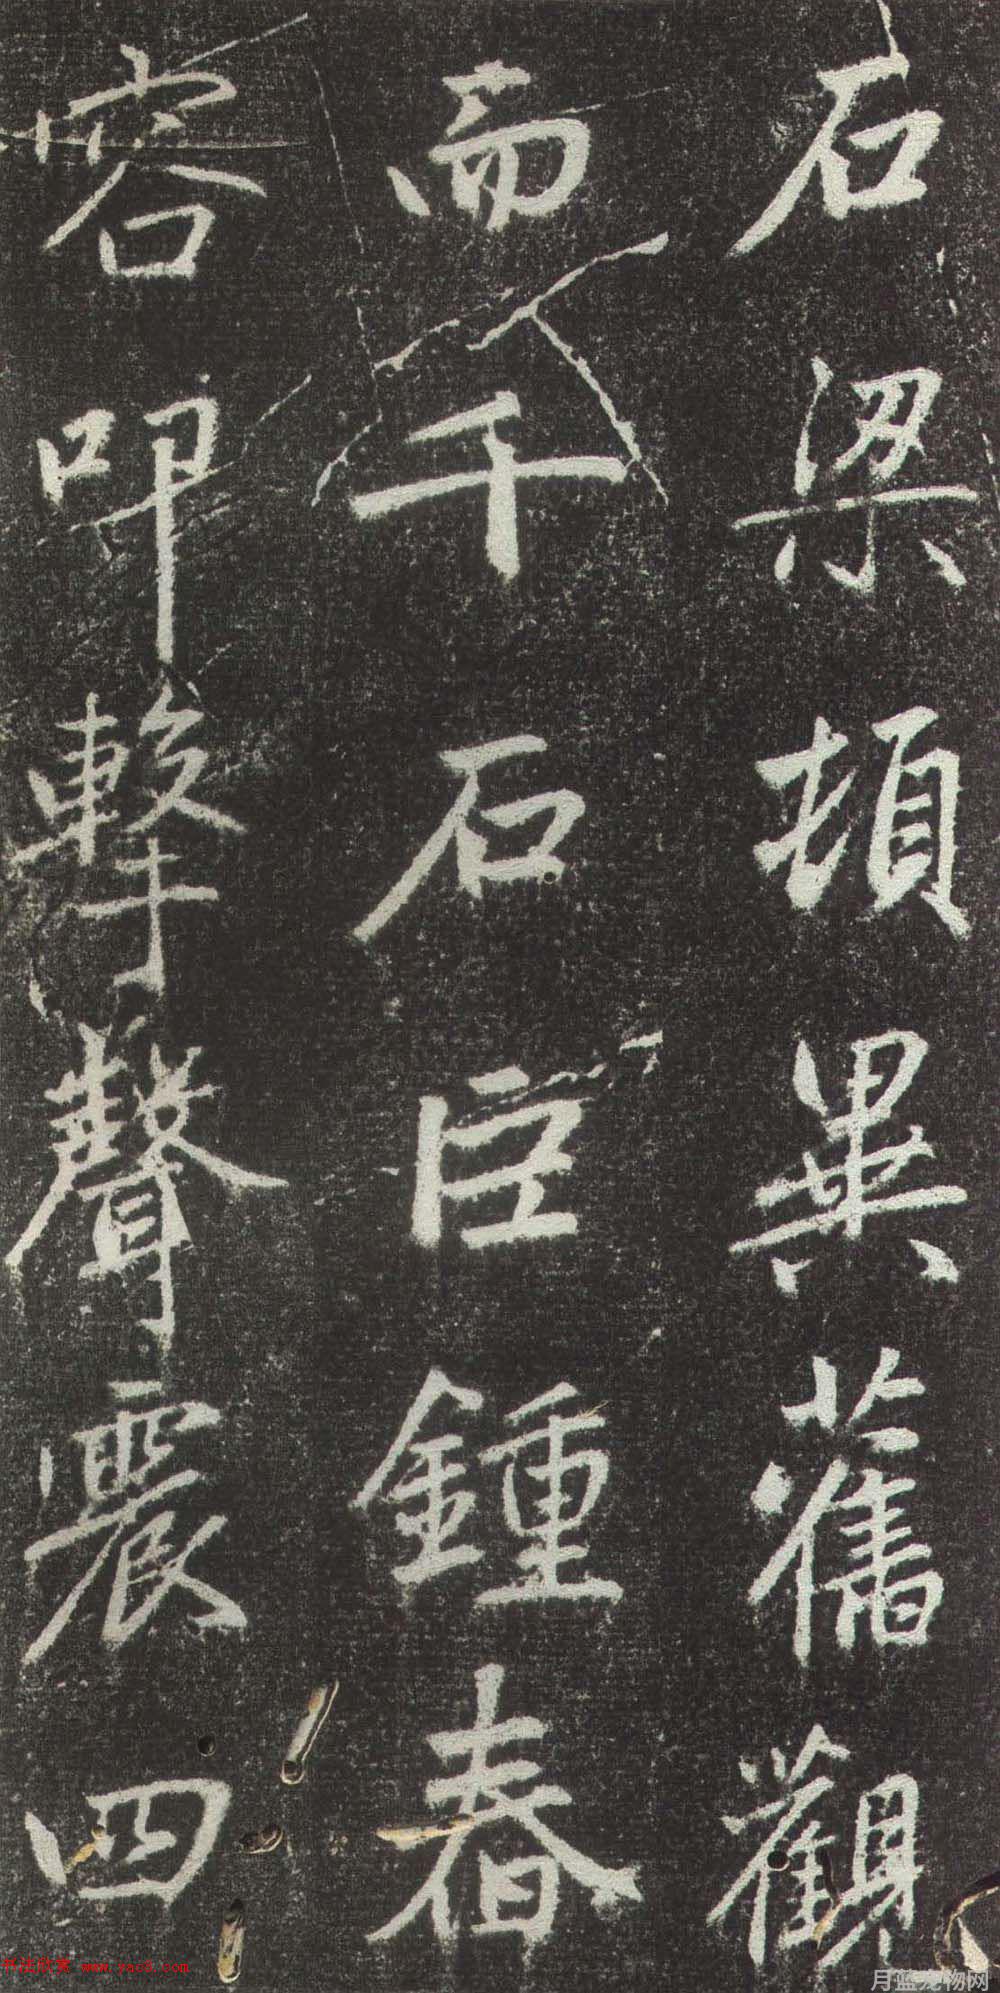 石梁頓異舊觀
而千石巨鍾舂
容叩擊聲震四
书法欣赏 www.yac8.com
月蓝宠物网